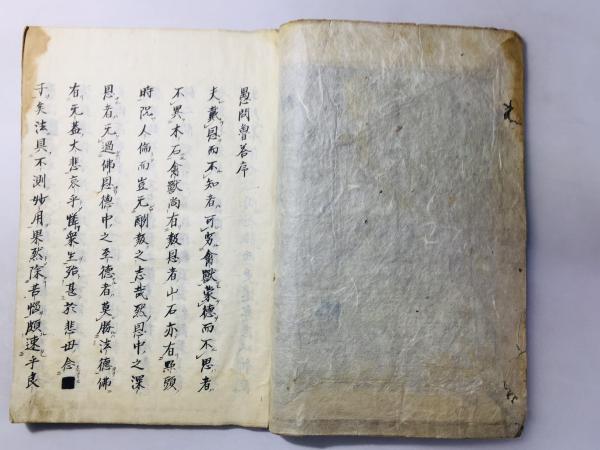 愚問魯荅序
夫戴恩而不知者可劣禽獸蒙德而不思者
不異木石禽獸尚有報恩者山石亦有點頭
時況人倫而豈无酬報之志哉然恩中之深
恩者无過佛恩德中之至德者莫勝法德佛
有无蓋大悲哀乎惟衆生殆甚於悲母念
子矣法具不測妙用果然除苦惱頗速乎良